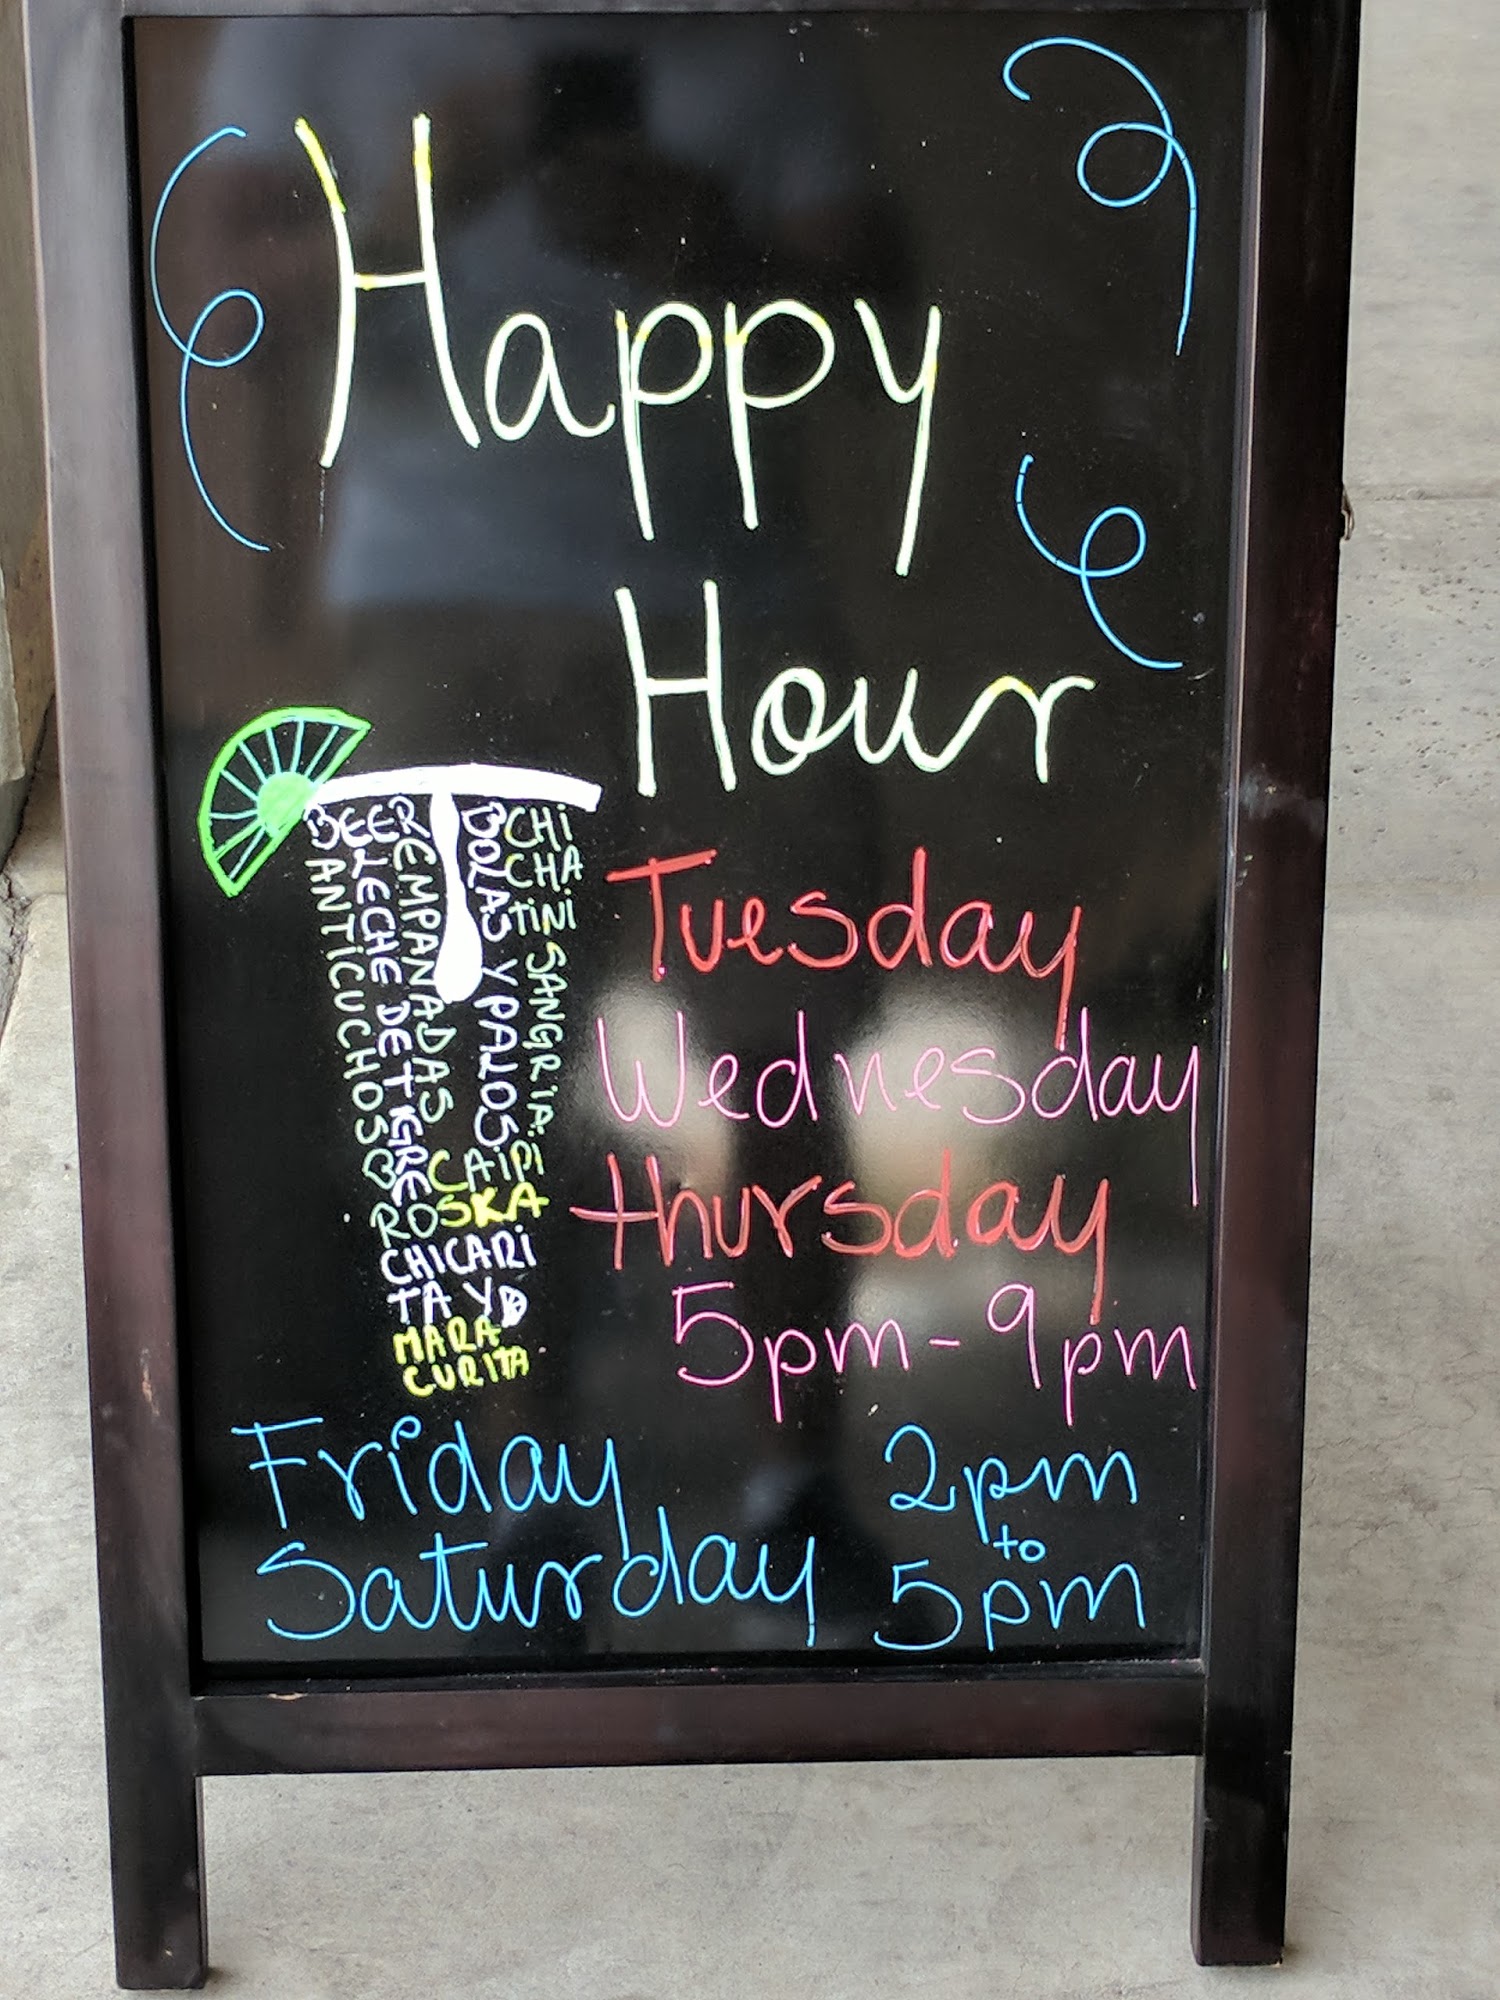 Happy
Hour
BEER
ANTICUCHOS
LECHE DE TIGRE
EMPANADAS
BOLAS Y PALOS
CHI
CHA
TINI
SANGRIA
CAIPI
ROSKA
CHICARI
TA Y
MARA
CURITA
Tuesday
Wednesday
Thursday
5pm - 9pm
Friday
Saturday
2pm
to
5pm